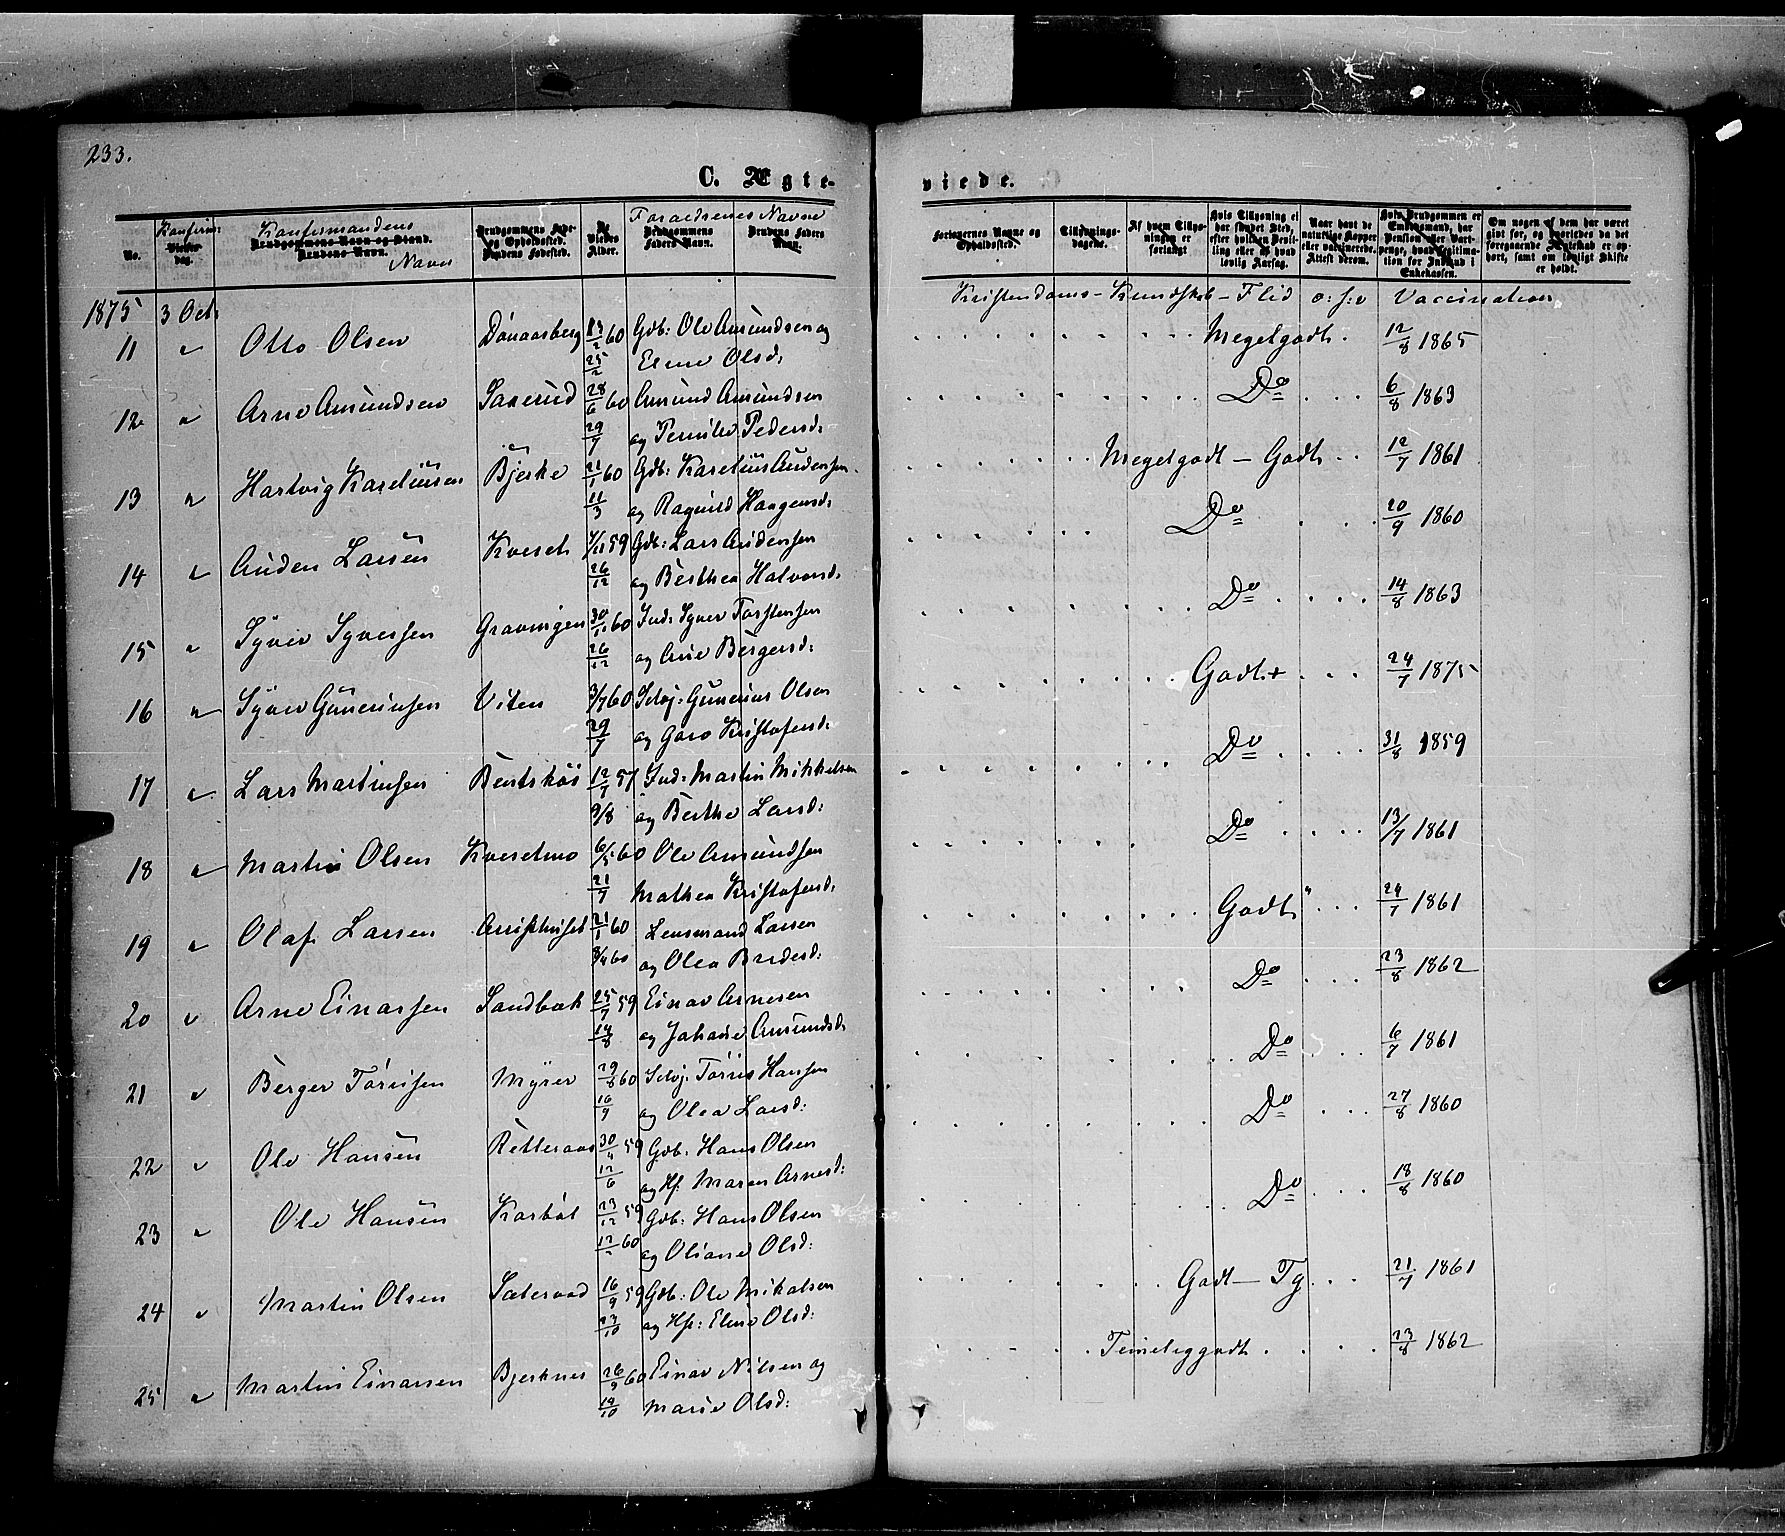 233.
C. Ægte-
viede.
No.
Konfirm:
Vielses-
dag.
Konfirmandens
Brudgommens Navn og Stand.
Brudens Navn.
Navn
Brudgommens Føde-
og Opholdssted.
Brudens Fødested.
De
Viedes
Alder.
Foraeldrenes Navne
Brudgommens
Faders Navn.
Brudens Faders
Navn.
Forlovernes Navne og
Opholdssted.
Tillysnings-
dagene.
Af hvem Tillys-
ningen er
forlangt.
Hvis Tillysning ei
har fundet Sted,
efter hvilken Bevil-
ling eller af hvad
lovlig Aarsag.
Naar havt de
naturlige Kopper
eller vaccinerede,
Attest derom.
Hvis Brudgommen er
Embedsmand, har
Pension eller Vart-
penge, hvad Legitima-
tion for Indskud i
Enkekassen.
Om nogen af dem har været
gift før, og hvorledes da det
foregaaende Ægteskab er op-
hørt, samt om lovligt Skifte
er holdt.
Kristendoms-Kundskab - Flid o:s:v Vaccination
1875 3 Oct:
11 " Otto Olsen 13/2 60 Gdb: Ole Amundsen og Megetgodt. 12/8 1865
25/2 Elene Olsd:
12 " Arne Amundsen Saxerud 28/6 60 Amund Amundsen Do 6/8 1863
29/7 og Pernille Pedersd:
13 " Hartvig Kareliussen Bjerke 21/1 60 Gdb: Karelius Audensen Megetgodt - Godt 12/7 1861
11/3 og Ragnild Haagensd:
14 " Auden Larsen Kveset 59 Gdb: Lars Audensen Do 20/9 1860
26/12 og Berthea Halvorsd:
15 " Syver Syversen Gravingen 30/11 60 Ind: Syver Torstensen Do 14/8 1863
26/12 og Anne Bergersd:
16 " Syver Guneriusen Viten 3/7 60 Selvj: Gunerius Olsen Godt+ 24/7 1875
29/7 og Goro Kristofersd:
17 " Lars Martinsen 12/7 57 Ind: Martin Mikkelsen Do 31/8 1859
9/8 og Berthe Larsd:
18 " Martin Olsen Kvesetmo 6/5 60 Ole Amundsen Do 13/7 1861
21/7 Mathea Kristofersd:
19 " Olaf Larsen Aristhuset 21/1 60 Lensmand Larsen Godt 24/7 1861
60 og Olea Bredesd:
20 " Arne Einarsen Sandbæk 25/7 59 Einar Arnesen Do 23/8 1862
14/8 og Johane Amundsd:
21 " Berger Tørrisen Myrer 29/8 60 Selvj: Tørris Hansen Do 6/7 1861
16/9 og Olea Larsd:
22 " Ole Hansen Retteraas 30/4 59 Gdb. Hans Olsen Do 27/8 1860
12/6 og Hf. Maren Arnesd:
23 " Ole Hansen Karbøl 23/12 59 Gdb: Hans Olsen Do 18/8 1860
12/2 60 og Oliane Olsd:
24 " Martin Olsen 16/9 59 Gdb: Ole Mikalsen Godt - Tg 21/7 1861
23/10 og Hf: Elene Olsd:
25 " Martin Einarsen Bjerknes 26/9 60 Einar Nilsen og Temeliggodt 23/8 1862
19/10 Marie Olsd: